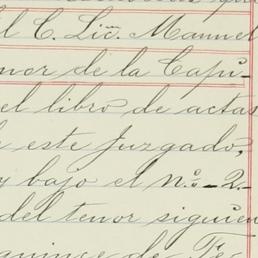 l C. Lic. Manuel
nor de la Capi-
el libro de actas
e este Juzgado,
y bajo el N.º 2.
del tenor siguien
quince de Fe